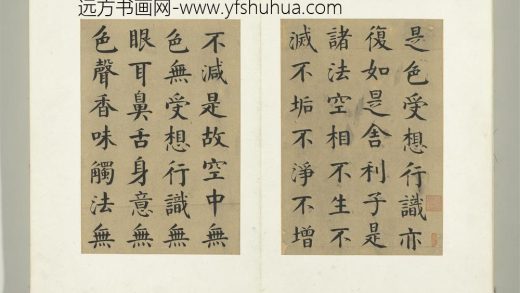 远方书画网-www.yfshuhua.com
是色受想行識亦
復如是舍利子是
諸法空相不生不
滅不垢不淨不增
不減是故空中無
色無受想行識無
眼耳鼻舌身意無
色聲香味觸法無